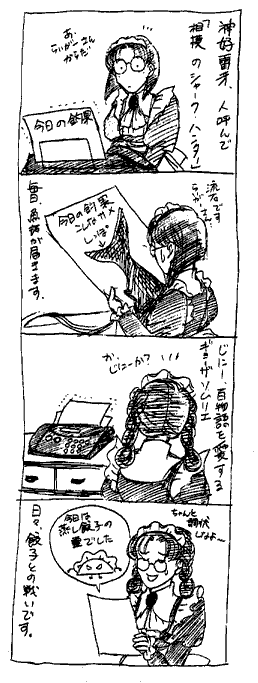 神好雷牙、人呼んで
「相模のシャーク・ハンター」
あ、
らいがー さん
からだ
今日の釣果
流石です
らいがーさん
今日の釣果
こんなでかい
しっぽ
毎日、魚拓が届きます。
じにー、百物語を愛する
ギョウザソムリエ
が、
じにーか?
ちゃんと
調伏
しなよ〜
今日は
蒸し餃子の
霊でした
日々、餃子との戦いです。